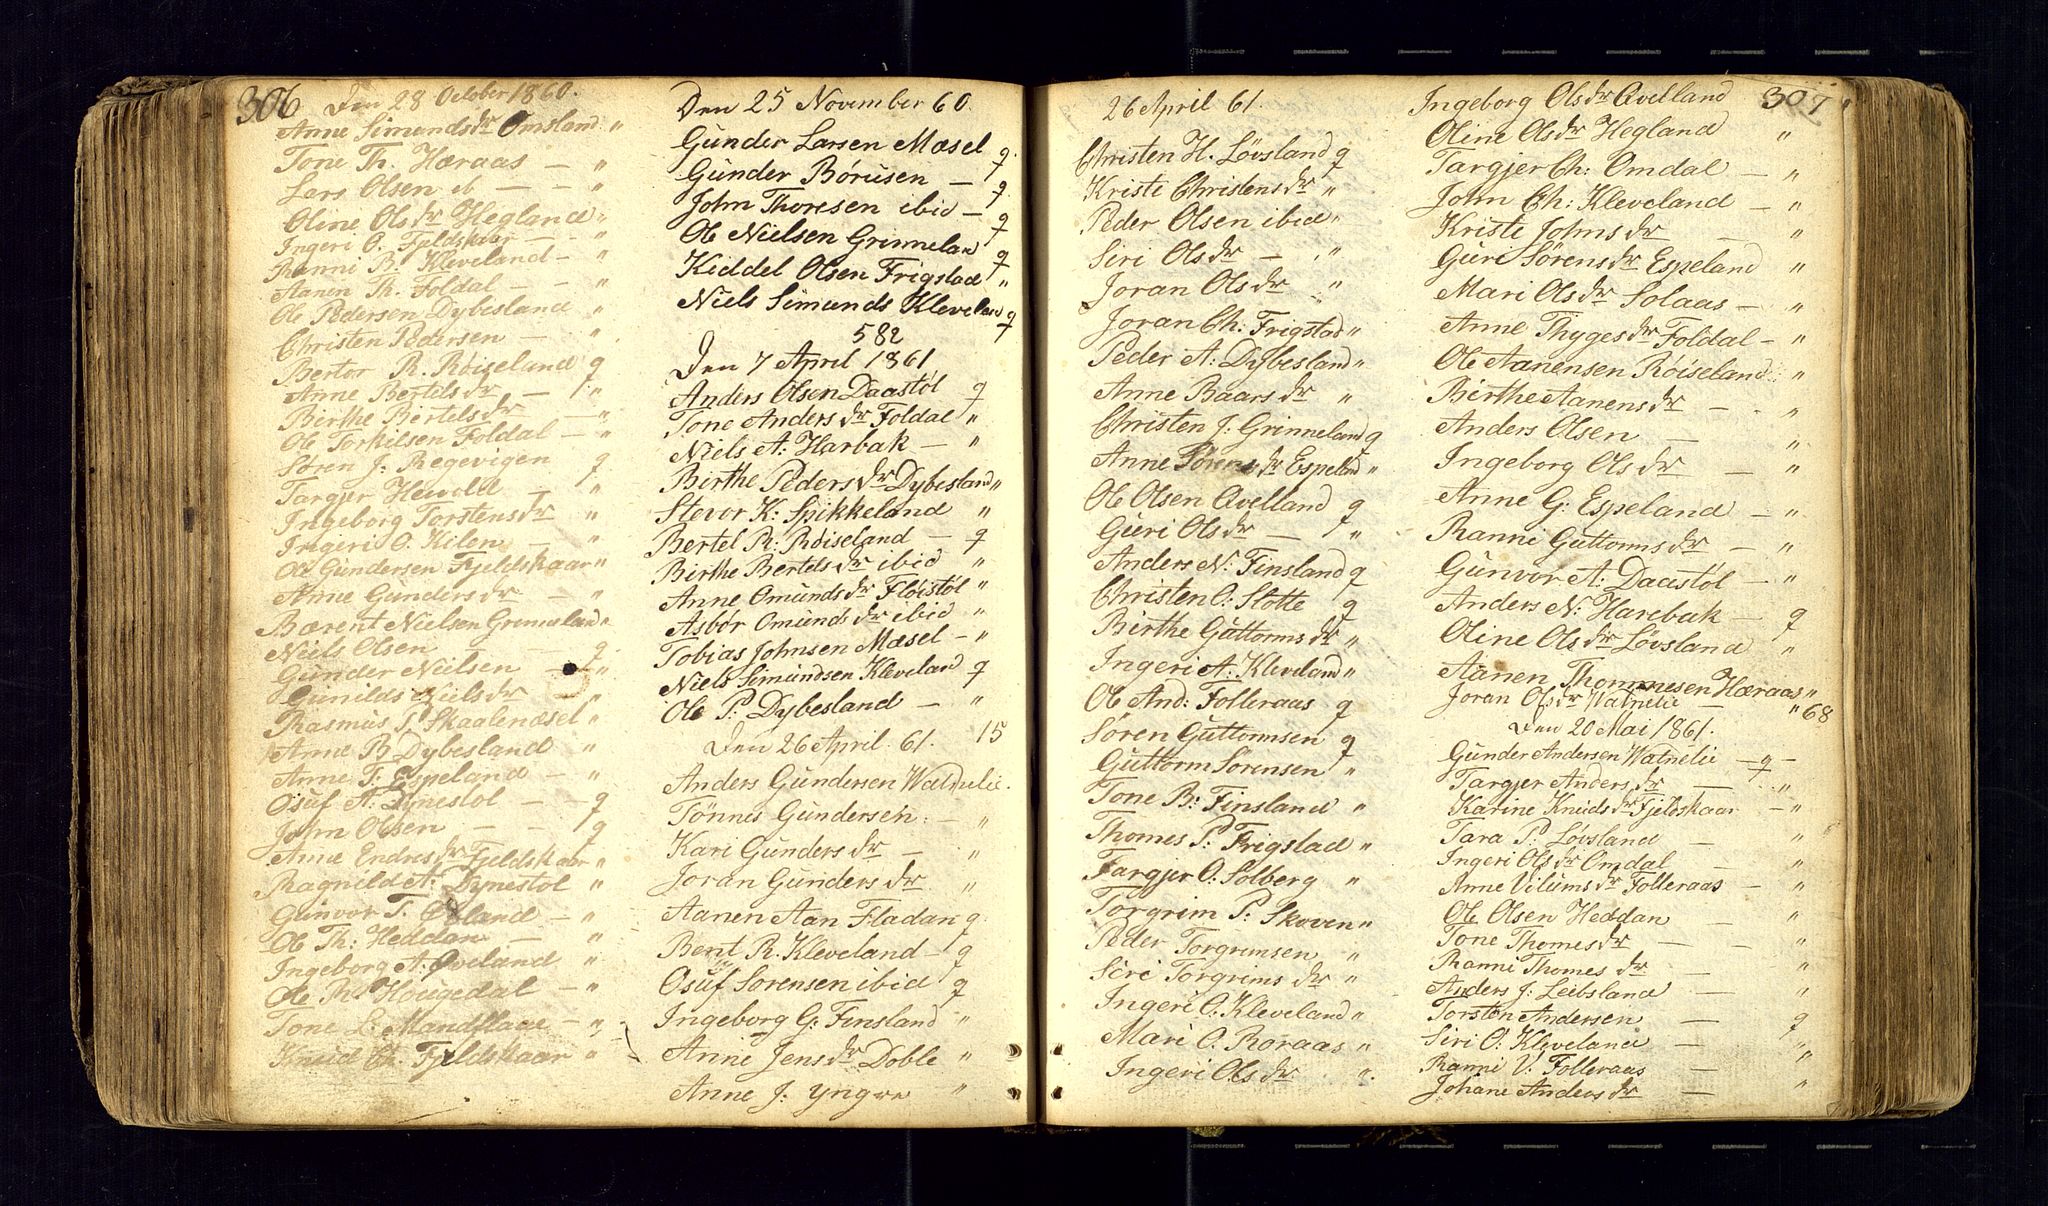 306 Den 28 October 1860.
Anne Simonds dr Omsland "
Tone Th. Hæraas — "
Lars Olsen ib — - "
Oline Ols dr Hegland "
Ingeri O. Fjeldskaar — - "
Ranni B. Kleveland - "
Aanen Th. Foldal - - "
Ole Pedersen Dybesland "
Christen Pedersen — "
Bertor R. Röiseland g
Anne Bertels dr — "
Birthe Bertels dr — "
Ole Torkilsen Foldal — "
Søren J: Regevigen g
Targjer Hevold — "
Ingeborg Torstens dr "
Ingeri O. Kilen — "
Ole Gundersen Fjeldskaar "
Anne Gunders dr — "
Bærent Nielsen Grinneland "
Niels Olsen — — g
Gunder Nielsen — "
Gunilds Niels dr — "
Rasmus P. Skaalenæsel "
Anne B Dybesland "
Anne T. Espeland — "
Osuf A: Dynestol — - g
John Olsen — - g
Anne Endres dr Fjeldskaar "
Ragnild A: Dynestol "
Gunvor T. Øvland — "
Ole Th: Heddan — "
Ingeborg A. Øveland "
Ole R. Hougedal — "
Tone L. Mandflaae — "
Knud Ch. Fjeldskaar "
Den 25 November 60.
Gunder Larsen Mæsel g.
Gunder Börusen — g
John Thoresen ibid — g.
Ole Nielsen Grinneland g
Kiddel Olsen Frigstad g
Niels Simunds Kleveland "
g
582
Den 7 April 1861
Anders Olsen Daastøl g
Tone Anders dr Foldal "
Niels A: Harbak — "
Birthe Peders dr Dybesland "
Stevor K: Spikkeland "
Bertel R: Röiseland — g
Birthe Bertels dr ibid "
Anne Omunds dr Fløistøl "
Asbör Omunds dr ibid "
Tobias Johnsen Mæsel — "
Niels Simundsen Kleveland g
Ole P: Dybesland — "
Den 26 April. 61. 15
Anders Gundersen Watnelie.
Tønnes Gundersen: — "
Kari Gunders dr — "
Joran Gunders dr "
Aanen Aan Fladan g.
Bent R. Kleveland — g
Osuf Sorensen ibid g
Ingeborg G: Finsland "
Anne Jens dr Doble "
Anne J: Yngre "
26 April 61.
Christen H. Løvsland g
Kriste Christens dr "
Peder Olsen ibid "
Siri Ols dr — "
Joran Ols dr "
Joran Ch: Frigstad "
Peder A: Dybesland "
Anne Baars dr "
Christen J: Grinneland g
Anne Sørens dr Espeland "
Ole Olsen Øvelland g
Guri Ols dr — "
Anders N: Finsland g
Christen O: Stotte g
Birthe Guttorms dr "
Ingeri A: Kleveland "
Ole And: Folleraas g
Søren Guttormsen g
Guttorm Sörensen "
Tone B: Finsland "
Thomes P: Frigstad "
Targjer O: Solberg "
Torgrim P: Skoven "
Peder Torgrimsen "
Siri Torgrims dr "
Ingeri O. Kleveland "
Mari O. Röraas "
Ingeri Ols dr "
Ingeborg Ols dr Øvelland 307 "
Oline Ols dr Hegland "
Targjer Ch: Omdal — "
John Ch: Kleveland — "
Kriste Johns dr — "
Guri Sørens dr Espeland "
Mari Ols dr Solaas — "
Anne Thyges dr Foldal — "
Ole Aanensen Röiseland "
Birthe Aanens dr — "
Anders Olsen — "
Ingeborg Ols dr — "
Anne G: Espeland — "
Ranni Guttorms dr — "
Gunvor A: Daastöl — "
Anders N: Harebak — g
Oline Ols dr Løvsland "
Aanen Thommesen Hæraas "
Joran Ols dr Watnelie — " 68
Den 20 Mai 1861.
Gunder Andersen Watnelie — g —
Targjer Anders dr — "
Karine Knuds dr Fjeldskaar — "
Tara P. Løvsland — "
Ingeri Ols dr Omdal — "
Anne Vilums dr Folleraas — "
Ole Olsen Heddan — "
Tone Thomes dr — — "
Ranni Thomes dr — "
Anders J: Leibsland — "
Torsten Andersen — g
Siri O: Kleveland — "
Ranni V. Folleraas —
Johane Anders dr — "